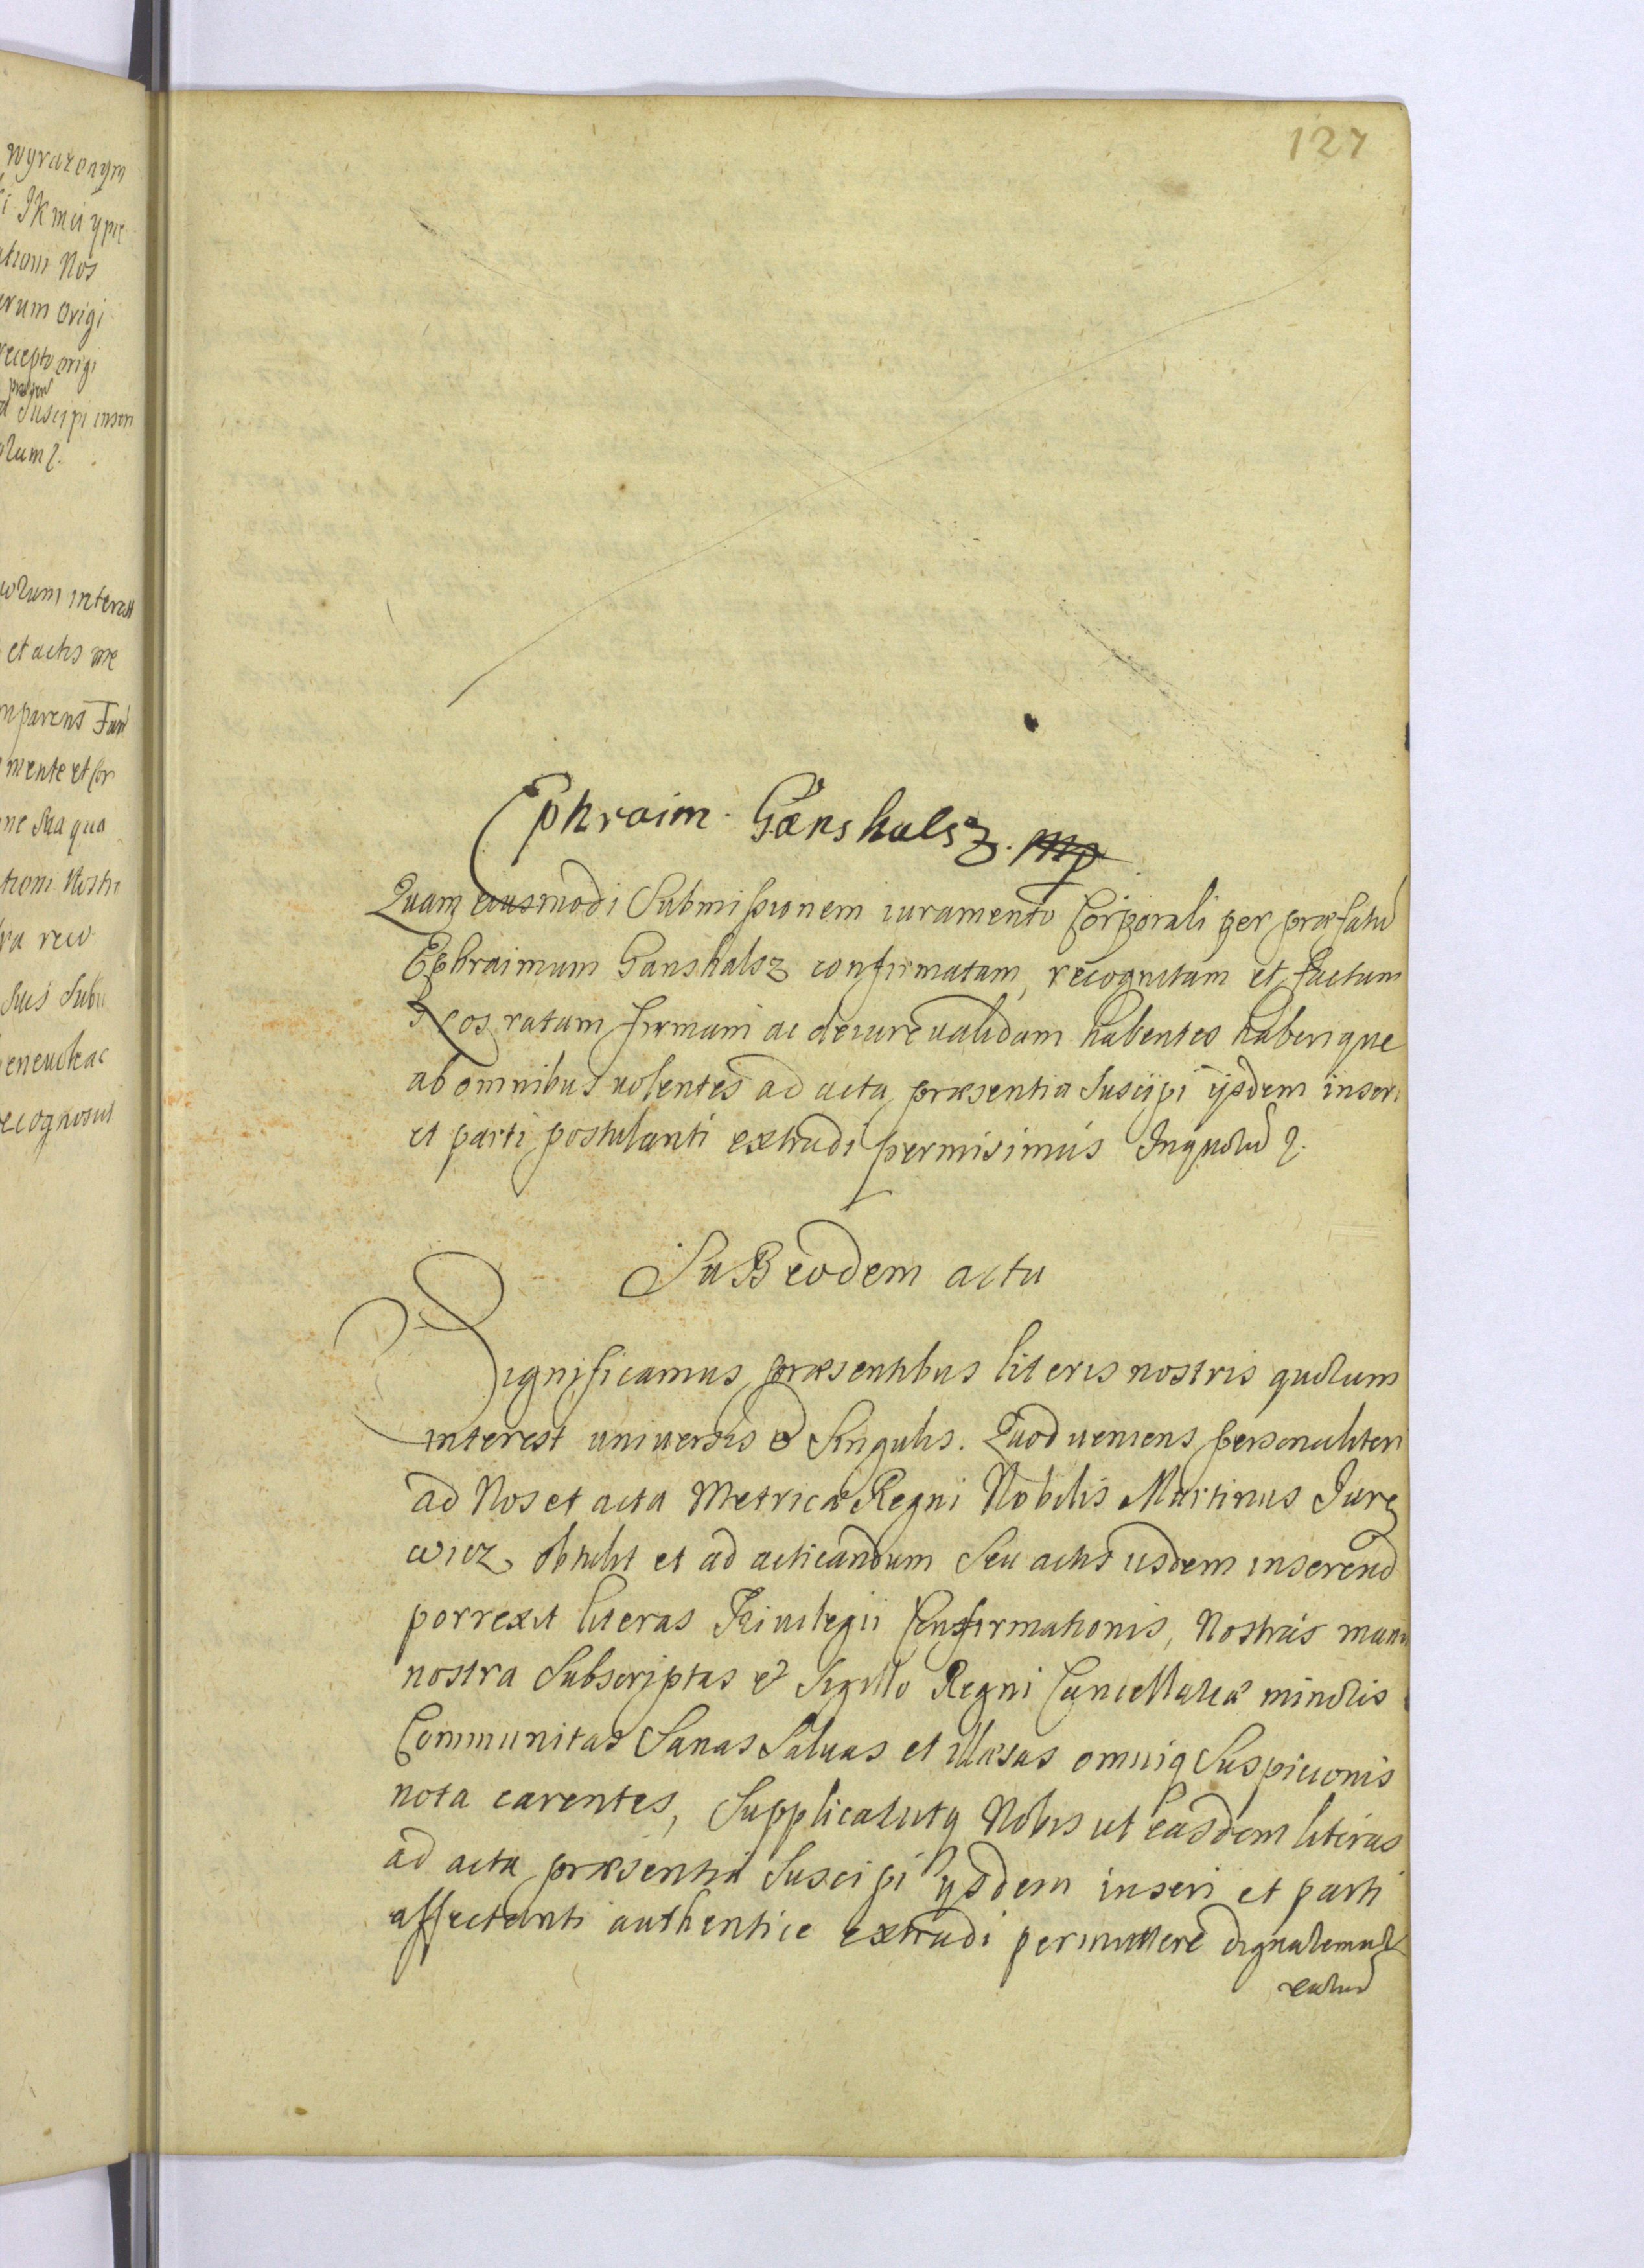 127
wyrazonym
i JKmci ypie
ationi Nos
arum origi
recepto origi
Suscipi inseri
interest
et actis me
mparens
mente et cor
ne sua quo
tioni Nostr
ra reco
suis subii
enevole ac
recognoscit
Ephraim Ganshalsz. mp
Quam eiusmodi Submissionem iuramento Corporali per præfatū
Ephraimum Ganshalsz confirmatam, recognitam et factam
Nos ratam firmam ac de iure validam habentes haberique
ab omnibus uolentes ad acta præsentia Suscipi ijsdem inseri
et parti postulanti extradi permisimus Inquorū
SuB eodem actu
Significamus præsentibus literis nostris quorum
interest uniuersis & Singulis. Quod ueniens personaliter
ad Nos et acta Metricæ Regni Nobilis Martinus Jure
wicz obtulit et ad acticandum Seu actis iisdem inserend
porrexit literas Priuilegii Confirmationis, Nostras manu
nostra Subscriptas & Sigillo Regni Cancellariæ minoris
Communitas Sanas Saluas et illæsas omniq Suspicionis
nota carentes, Supplicauitq Nobis ut easdem literas
ad acta præsentia Suscipi ijsdem inseri et parti
affectanti authentice extradi permittere dignaremur
earum